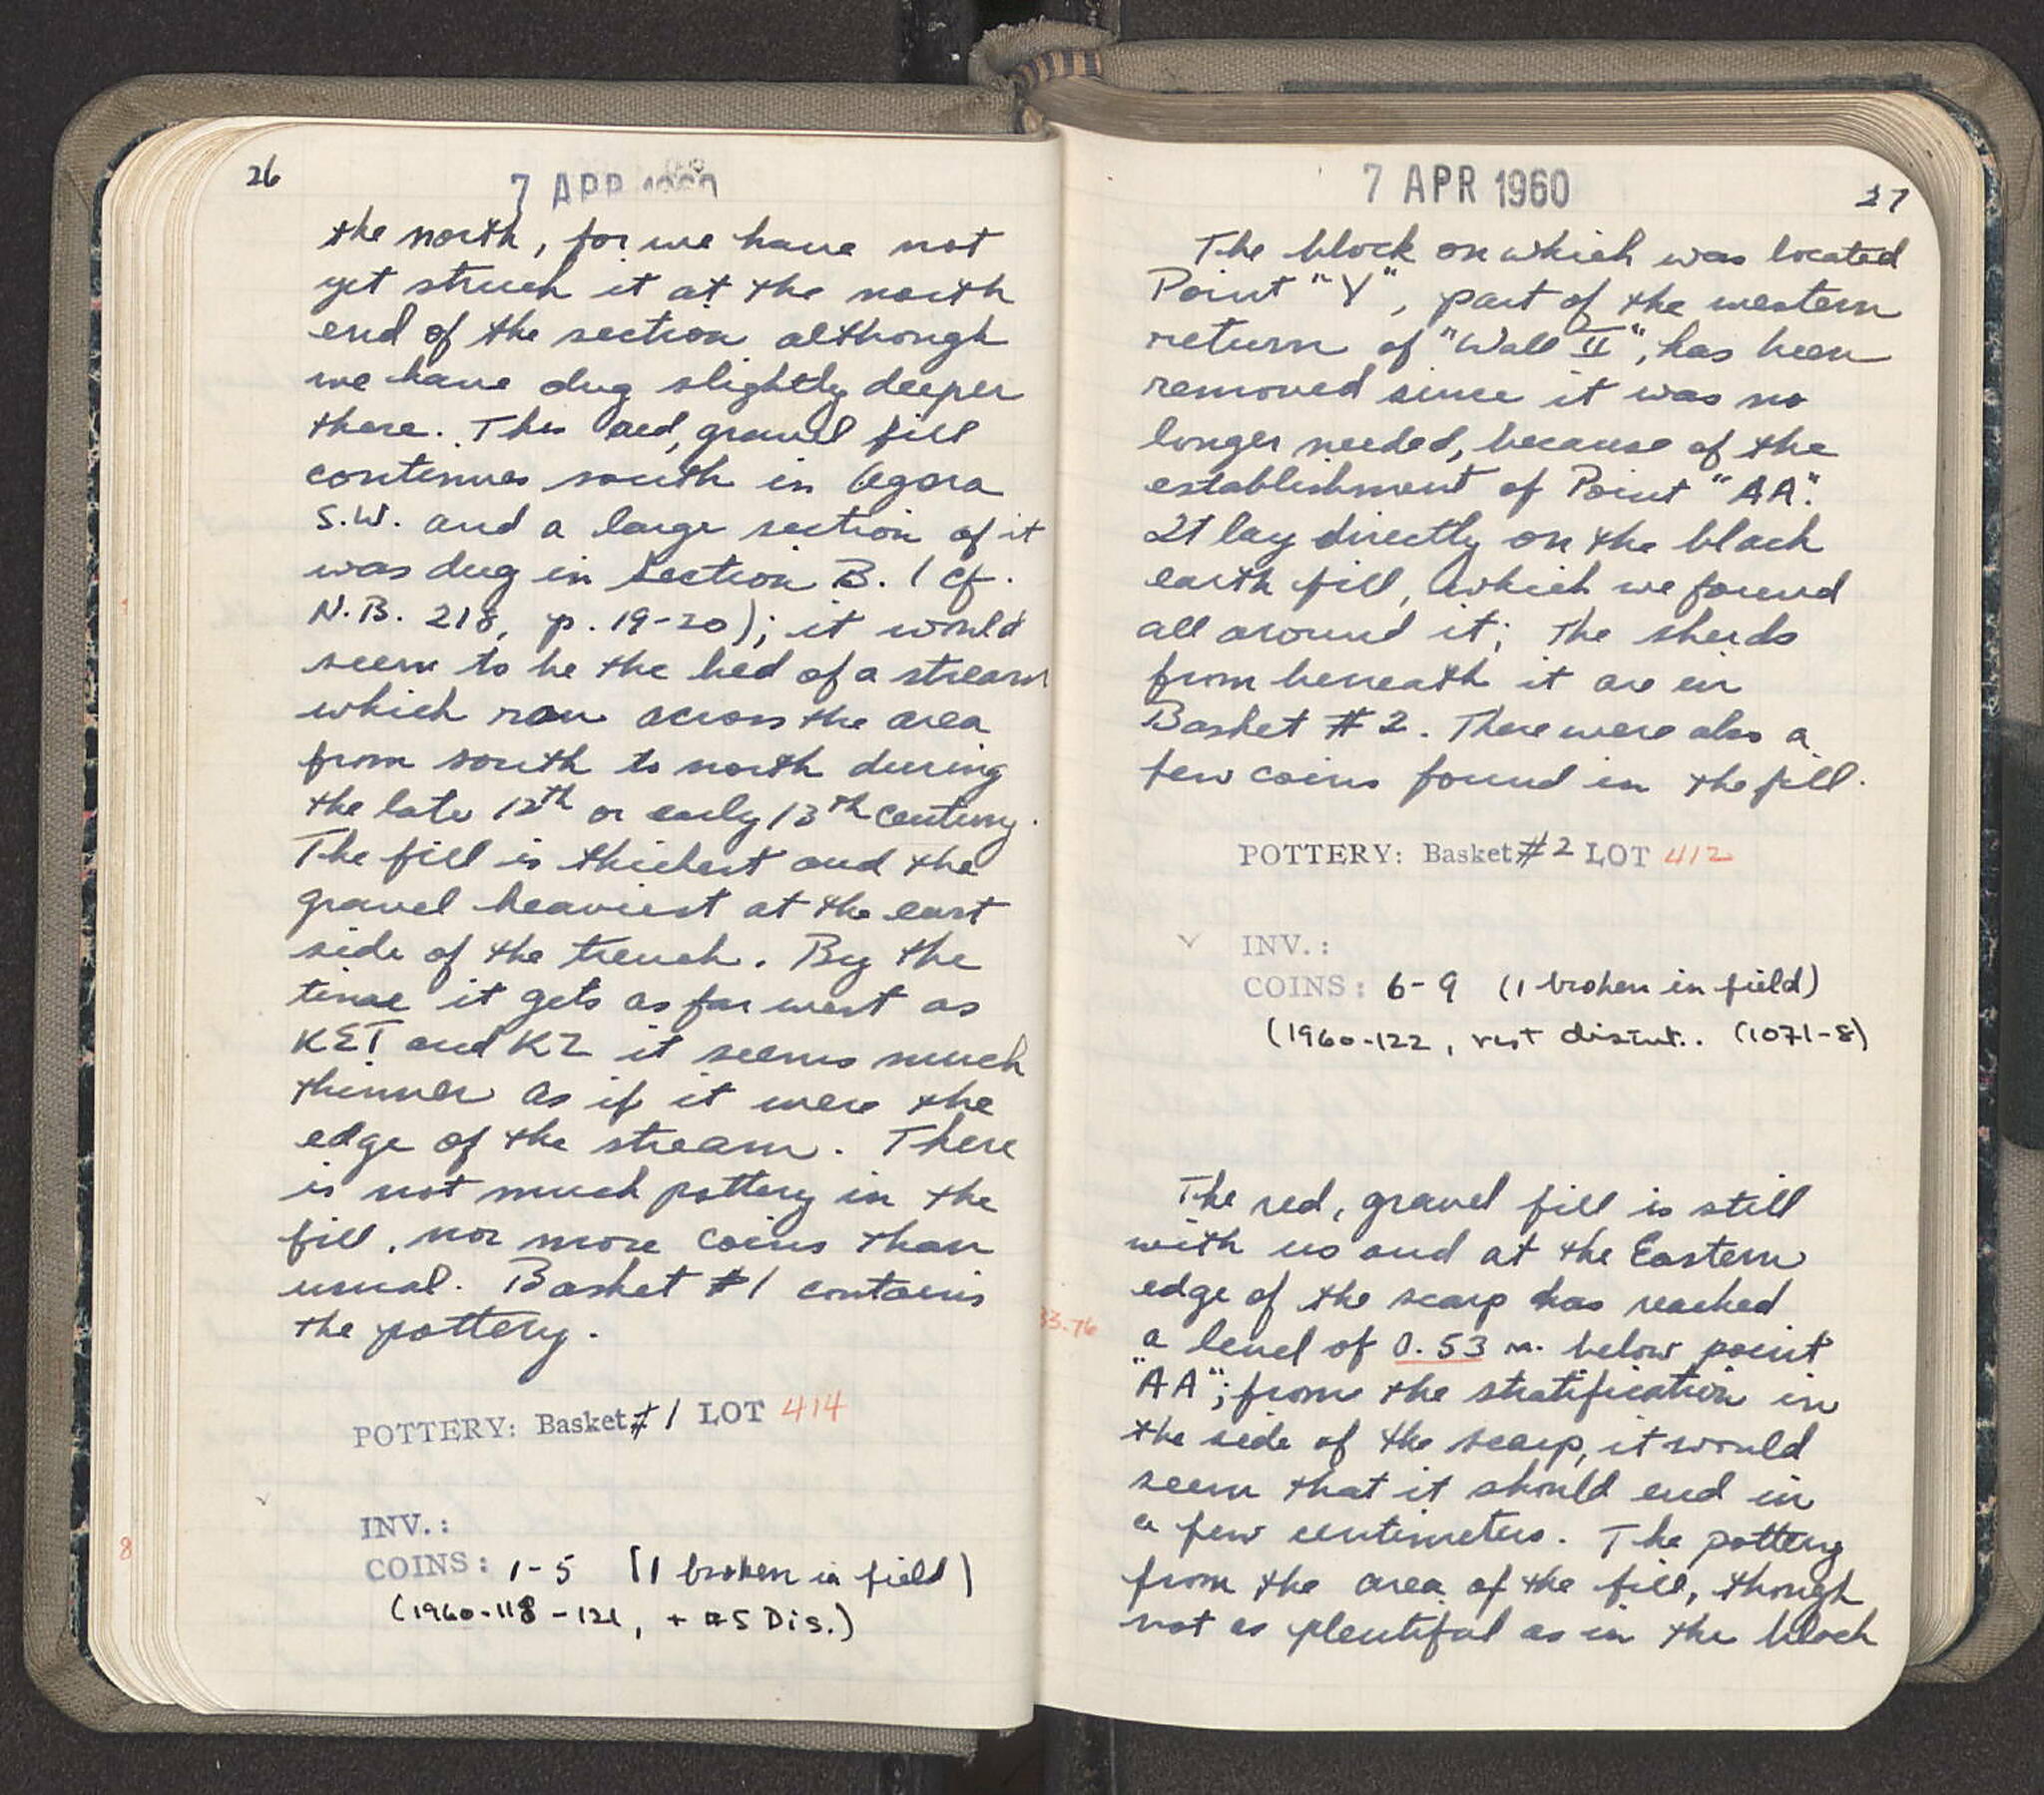 26
7 APR 1960
the north, for we have not
yet struck it at the north
end of the section although
we have dug slightly deeper
there. This red, gravel fill
continues south in Agora
S.W. and a large section of it
was dug in Section B. (cf.
N.B. 218, p. 19-20); it would
seem to be the bed of a stream
which ran across the area
from south to north during
the late 12th or early 13th century.
The fill is thickest and the
gravel heaviest at the east
side of the trench. By the
time it gets as far west as
and it seems much
thinner as if it were the
edge of the stream. There
is not much pottery in the
fill, nor more coins than
usual. Basket #1 contains
the pottery.
POTTERY: Basket #1 LOT 414
INV.:
COINS: 1-5 (1 broken in field)
(1960-118-121, + #5 Dis.)
8
7 APR 1960
27
The block on which was located
Point "Y", part of the western
return of "Wall II", has been
removed since it was no
longer needed, because of the
establishment of Point "AA".
It lay directly on the black
earth fill, which we found
all around it; the sherds
from beneath it are in
Basket #2. There were also a
few coins found in the fill.
POTTERY: Basket #2 LOT 412
INV.:
COINS: 6-9 (1 broken in field)
(1960-122, rest disint.. (1071-8)
The red, gravel fill is still
with us and at the Eastern
edge of the scarp has reached
33.76
a level of 0.53 m. below point
"AA"; from the stratification in
the side of the scarp, it would
seem that it should end in
a few centimeters. The pottery
from the area of the fill, though
not as plentiful as in the black